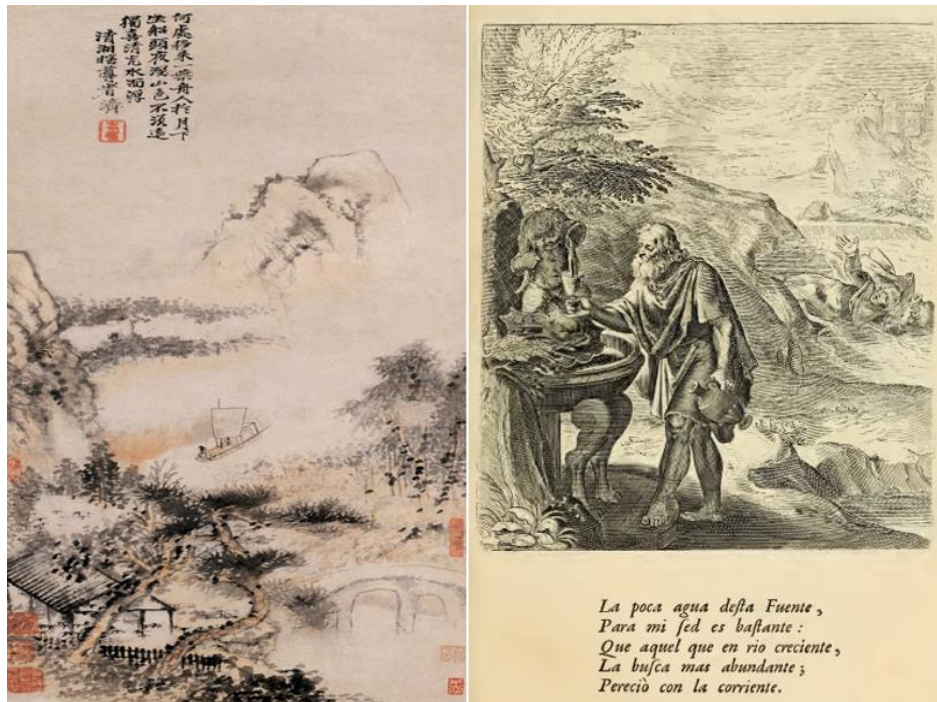 何處移來一葉舟人於月下
坐船頭夜深山色不須遠
獨喜清光水面浮
清湘瞎尊者濟
La poca agua deſta Fuente ,
Para mi ſed es baſtante :
Que aquel que en rio creciente ,
La buſca mas abundante ;
Pereciò con la corriente.